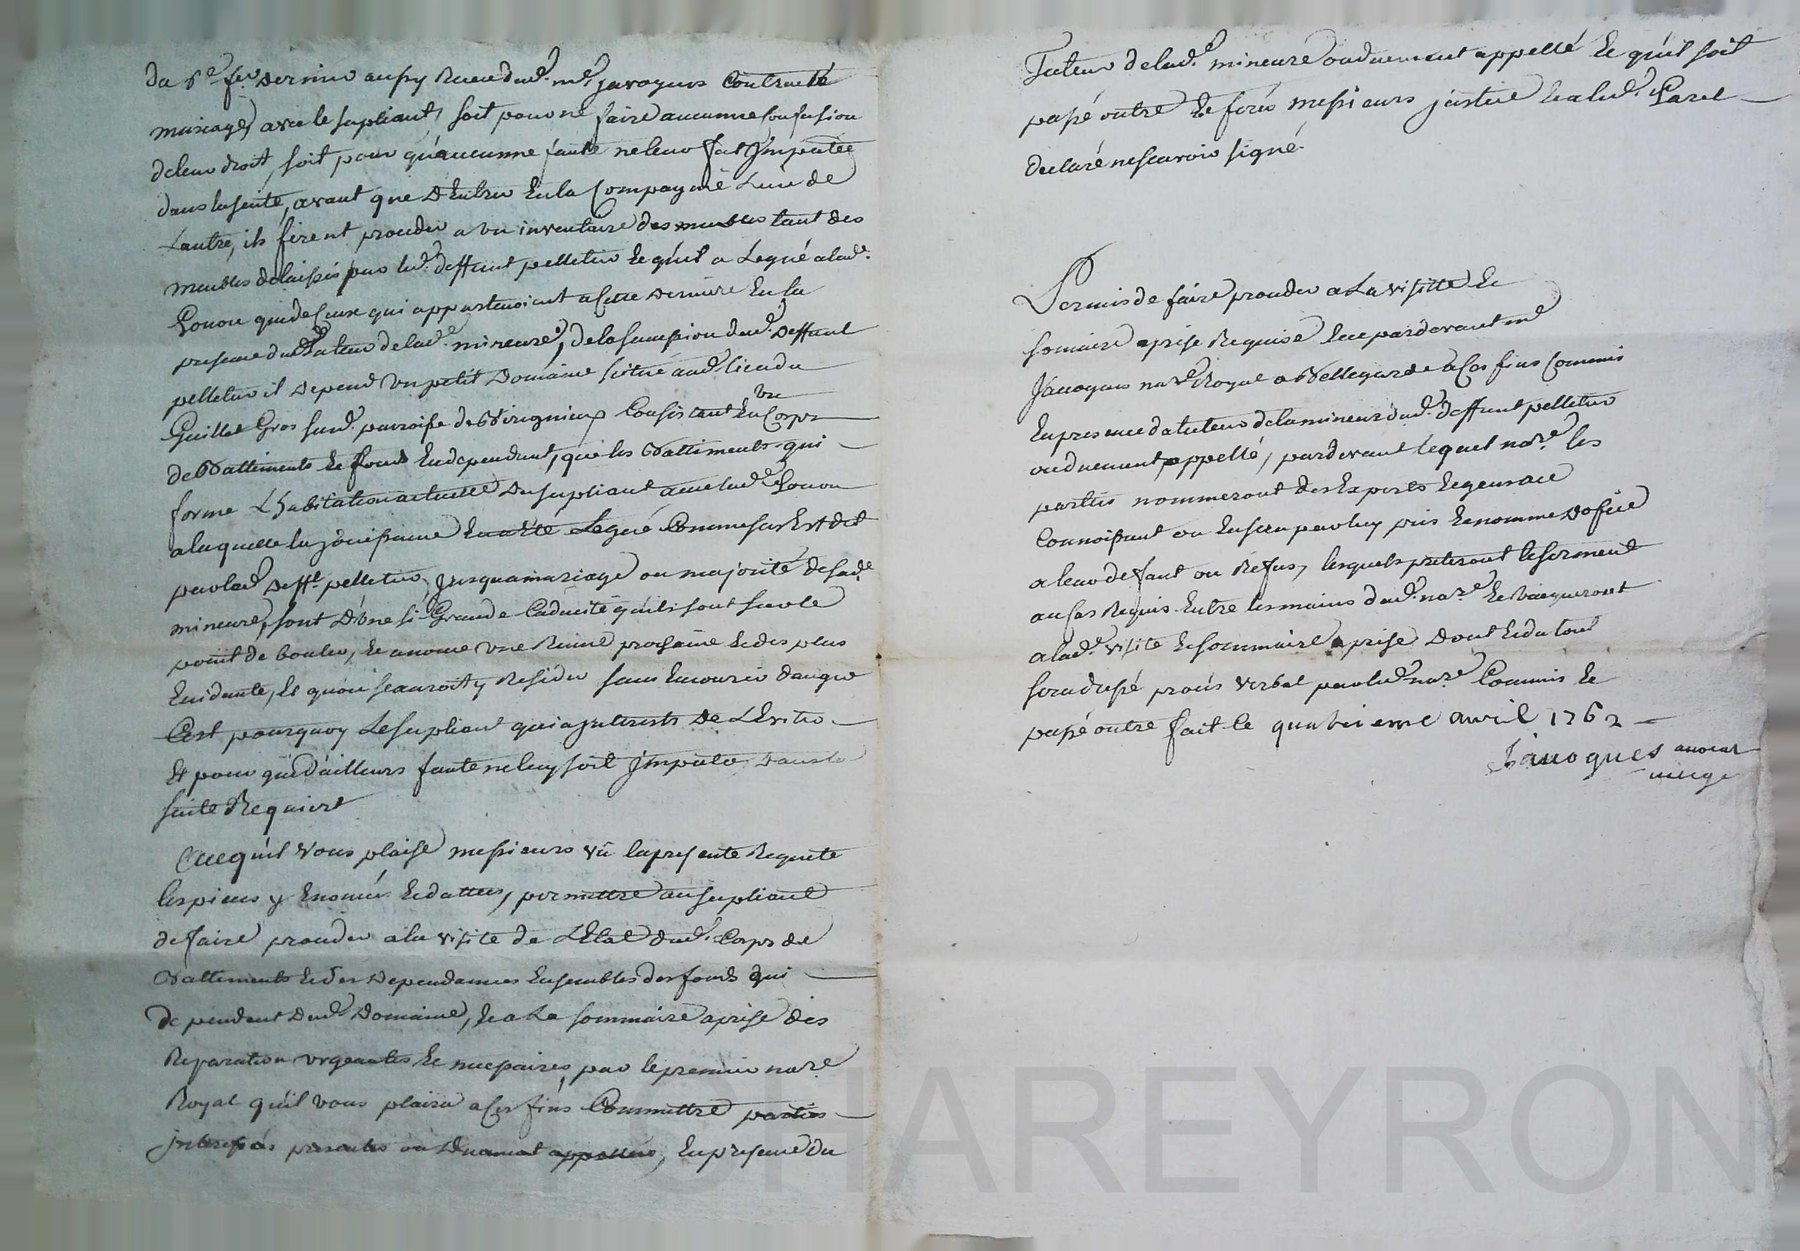 du 6e fer dernier aussy Receu dud. me javogues Contracté
mariage avec le supliant, soit pour ne faire aucunne Confusion
de leur droit, soit pour qu'aucunne faute ne leur fut Imputée
dans la suitte, avant que d'Entrer En la Compagnie L'un de
Lautre, ils firent proceder a un inventaire des meubles tant des
meubles delaissés par led. deffunt pelletier Et qu'il a Legué a lad.
Ponou que de Ceux qui appartenoient a Cette derniere En la
presence dud. Tuteur de lad. mineure, de la sucession dud. deffunt
pelletier il depend un petit Domaine scitué aud. lieu du
Guillot Gros sud. parroisse de Virignieux Consistant En un Corps
de Battiments Et fonds En dependant, que les Battiments qui
forme L'habitation actuelle du supliant avec lad. Ponou
a laquelle la joüissance En a Eté Legué Comme sus Est dit
par led. defft. pelletier, jusqua mariage ou majorité de lad.
mineure, sont d'une si Grande Caducité qu'ils sont sur le
point de Couler, Et anonce une Ruine prochaine Et des plus
Evidante, Et qu'on ne sauroit y Resider sans Encourir danger
C'est pourquoy Le supliant qui a jnterests de L'Eviter
Et pour que d'ailleurs faute ne luy soit jmputée dans la
suite Requiert
Ce qu'il Vous plaise messieurs vû la presente Requete
les pieces y Enoncé Et dattées, permettre au supliant
de faire proceder a la visite de L'Etat dud. Corps de
Battiments Et des Dependances Ensembles des fonds qui
dependent dud. Domaine, Et a La sommaire aprise des
Reparation urgeantes Et necessaires, par le premier nore
Royal qu'il vous plaira a Ces fins Commettre parties
jnteressés presentes ou duement appellées, En presence du
Tuteur de lad. mineure ou duement appellé Et qu'il soit
passé outre Et ferés messieurs justice Et a led. Parel
declaré ne scavoir signé.
Permis de faire proceder a La visitte Et
somaire aprise Requise Et ce pardevant me
Javogues nore Royal a Bellegarde a Ces fins Commis
En presence du tuteur de la mineure dud. deffunt pelletier
ou duement appellé, pardevant lequel nore les
parties nommeront des Experts Et gens a ce
Connoissant ou En sera par luy pris Et nomme d'ofice
a leur defaut ou Refus, lesquels preteront le serment
au Cas Requis Entre les mains dud. nore Et vacqueront
a lad. visite Et sommaire aprise dont Et du tout
sera dressé procés verbal par led. nore Commis Et
passé outre fait le quatrieme avril 1762
Javogues avocat